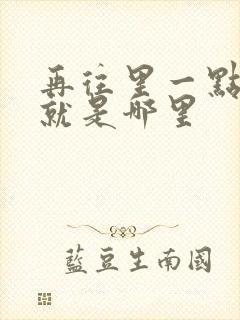 再往里一點
就是哪里
藍豆生南國